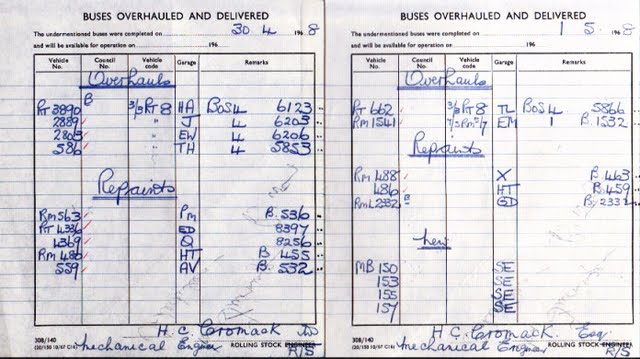 BUSES OVERHAULED AND DELIVERED
The undermentioned buses were completed on 30.4 1968
and will be available for operation on 196
Vehicle No. Council No. Vehicle code Garage Remarks
Overhauls
RT 3890 B 3/3RT8 HA Bos 4 6123
2889 " J 4 6203
2803 " EW 4 6206
586 " TH 4 5853
Repaints
RM 563 PM B.536
RT 4336 ED 8397
4369 Q 8256
RM 486 HT B 455
559 AV B.532
H.C. Cromack
Mechanical Engineer ROLLING STOCK ENGINEER
R/S
308/140
BUSES OVERHAULED AND DELIVERED
The undermentioned buses were completed on 1 5 1968
and will be available for operation on 196
Vehicle No. Council No. Vehicle code Garage Remarks
Overhauls
RT 662 3/3RT8 TL Bos 4 5866
RM 1541 EM 1 B.1532
Repaints
RM 488 X B 463
486 HT B.459
RML2332 GD B.2332
new
MB 150 SE
153 SE
155 SE
157 SE
H.C. Cromack. Esq
Mechanical Engineer ROLLING STOCK ENGINEER
R/S
308/140